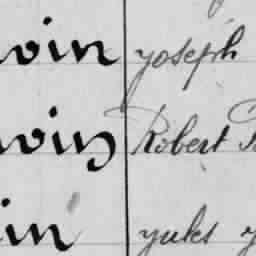 win Joseph
win Robert
in Jules